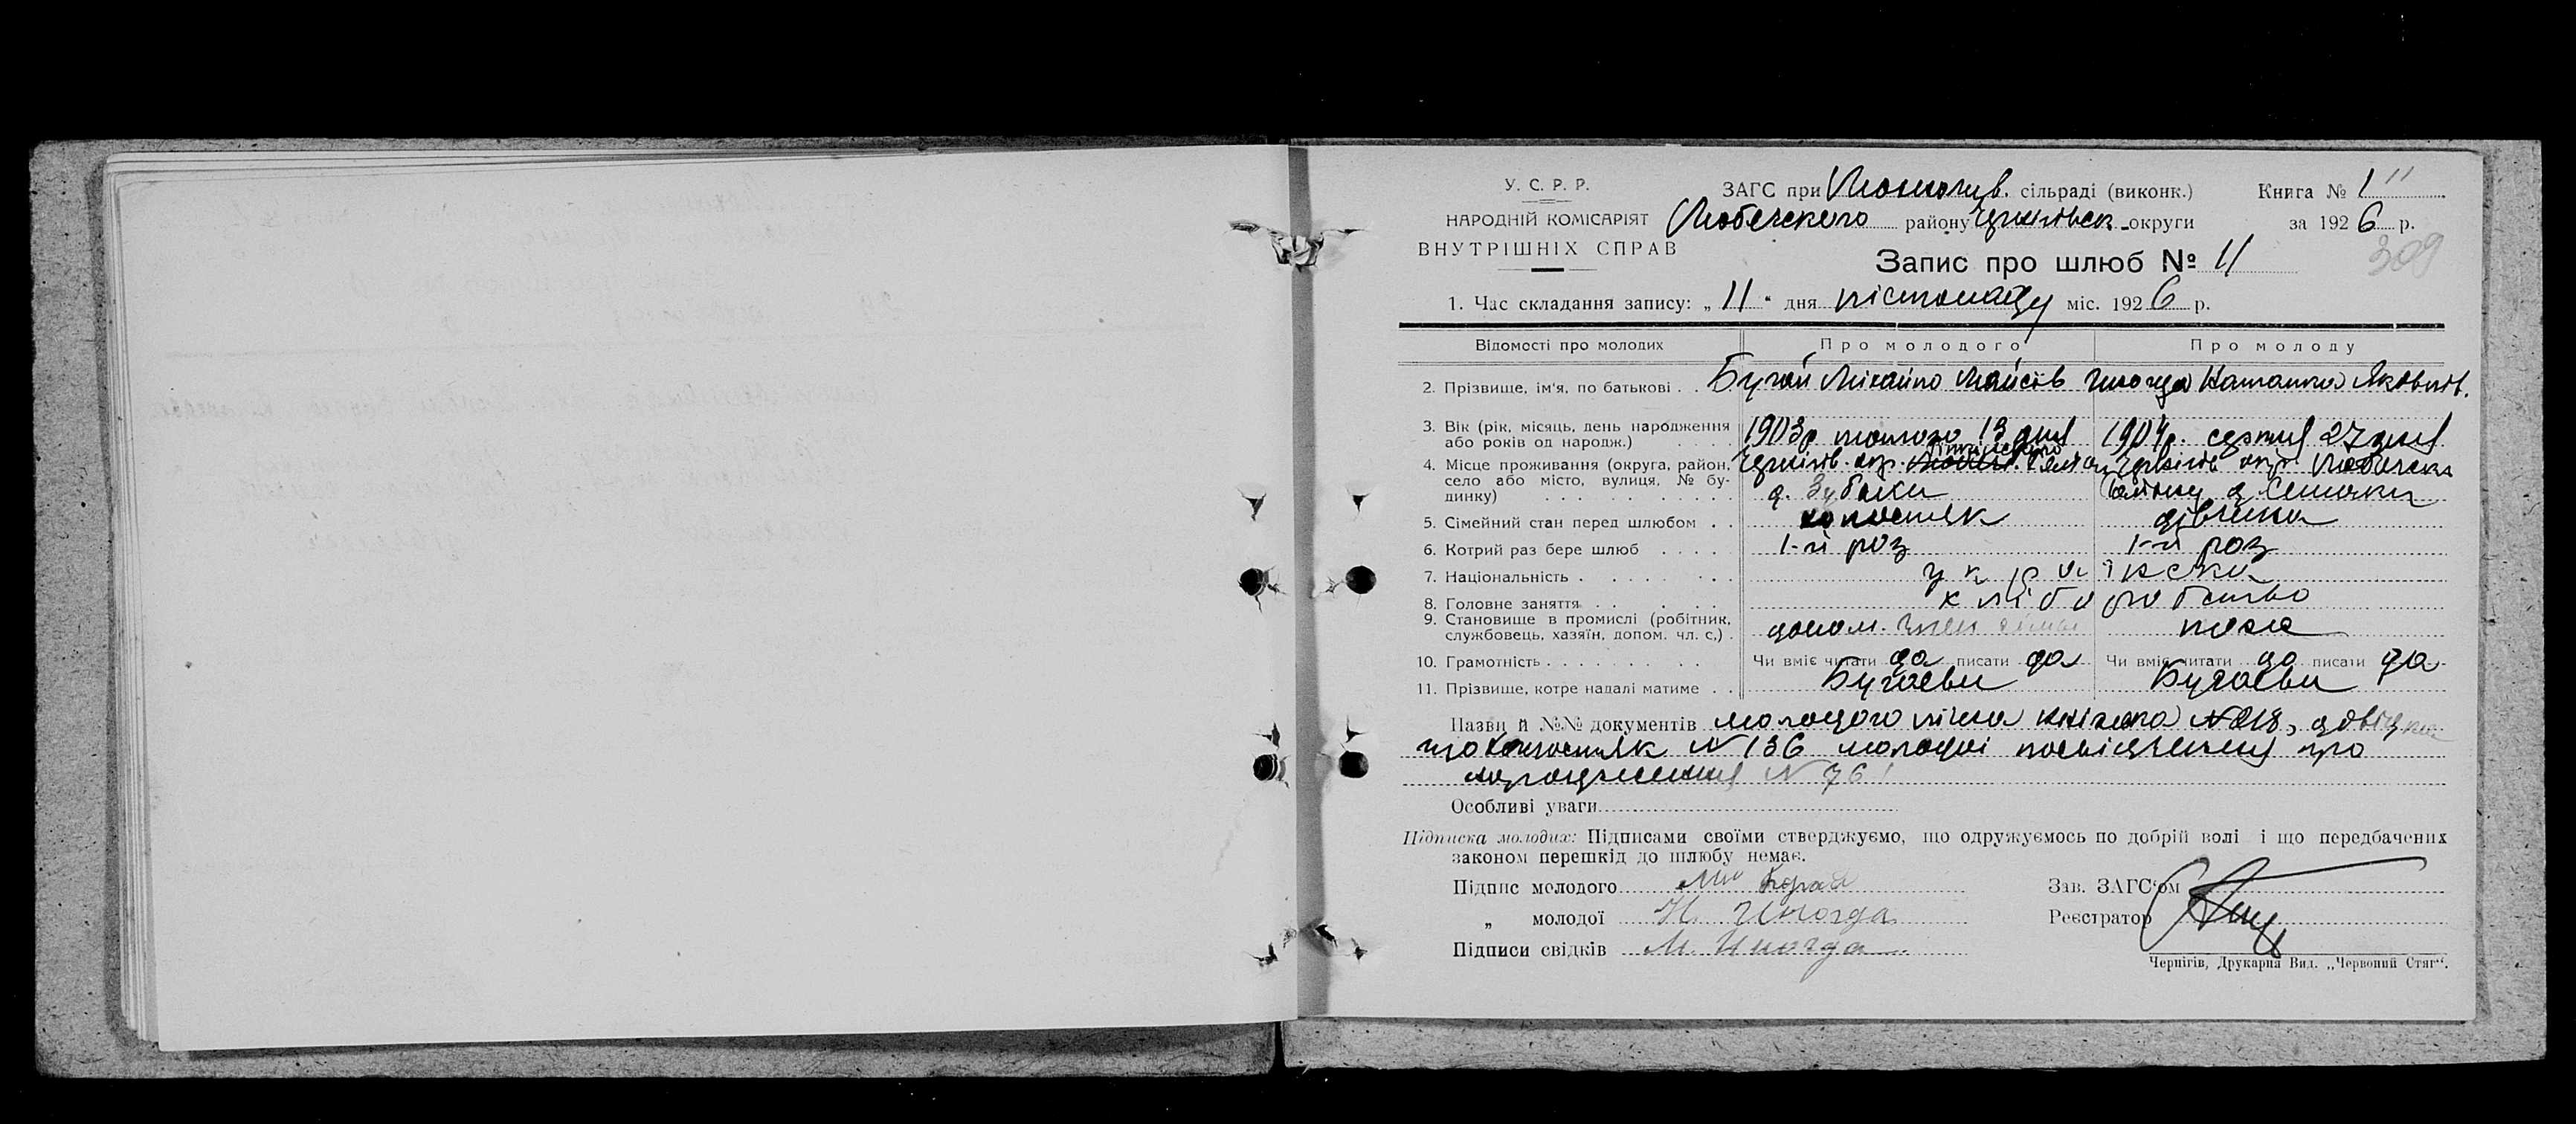 У. С. Р. Р.
НАРОДНІЙ КОМІСАРІЯТ
ВНУТРІШНІХ СПРАВ
ЗАГС при сільраді (виконк.)
Любечского району Чернігівск. округи
Книга № 1
за 1926 р.
309
Запис про шлюб № 11
1. Час складання запису: „ 11 “ дня лістопаду міс. 1926 р.
Відомості про молодих Про молодого Про молоду
2. Прізвище, ім'я, по батькові . . Бугай Міхайло Мойсів Иногда Наталка Яковлів.
3. Вік (рік, місяць, день народження або років од народж.) 1903р. лютого 13 дня 1904р. серпня 27 дня
4. Місце проживання (округа, район, село або місто, вулиця, № будинку) Чернігів. окр. д. Зубахи Чернігів. окр. Любечска району д. Семаки
5. Сімейний стан перед шлюбом . . холостяк дівчина
6. Котрий раз бере шлюб . . . . 1-й роз 1-й роз
7. Національність . . . . . . . українски
8. Головне заняття . . . . . хліборобство
9. Становище в промислі (робітник, службовець, хазяїн, допом. чл. с.) . допом. член сімьі тоже
10. Грамотність . . . . . . . Чи вміє читати да писати да Чи вміє читати до писати да
11. Прізвище, котре надалі матиме . . Бугаєви Бугаєви
Назви й №№ документів молодого книжка N 218, довідка
що холостяк N 136 молодоі посвідчення про
народження N 76
Особливі уваги
Підписка молодих: Підписами своїми стверджуємо, що одружуємось по добрій волі і що передбачених
законом перешкід до шлюбу немає.
Підпис молодого
„ молодої Н. Иногда
Підписи свідків М. Иногда
Зав. ЗАГС'ом
Реєстратор
Чернігів, Друкарня Вид. „Червоний Стяг“.